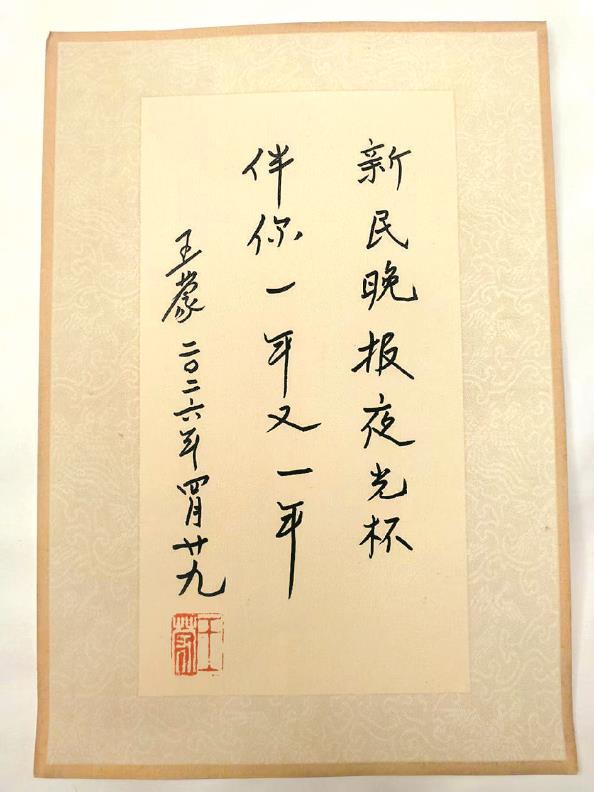 新民晚报夜光杯
伴你一年又一年
王蒙 二〇二六年四月廿九
王蒙